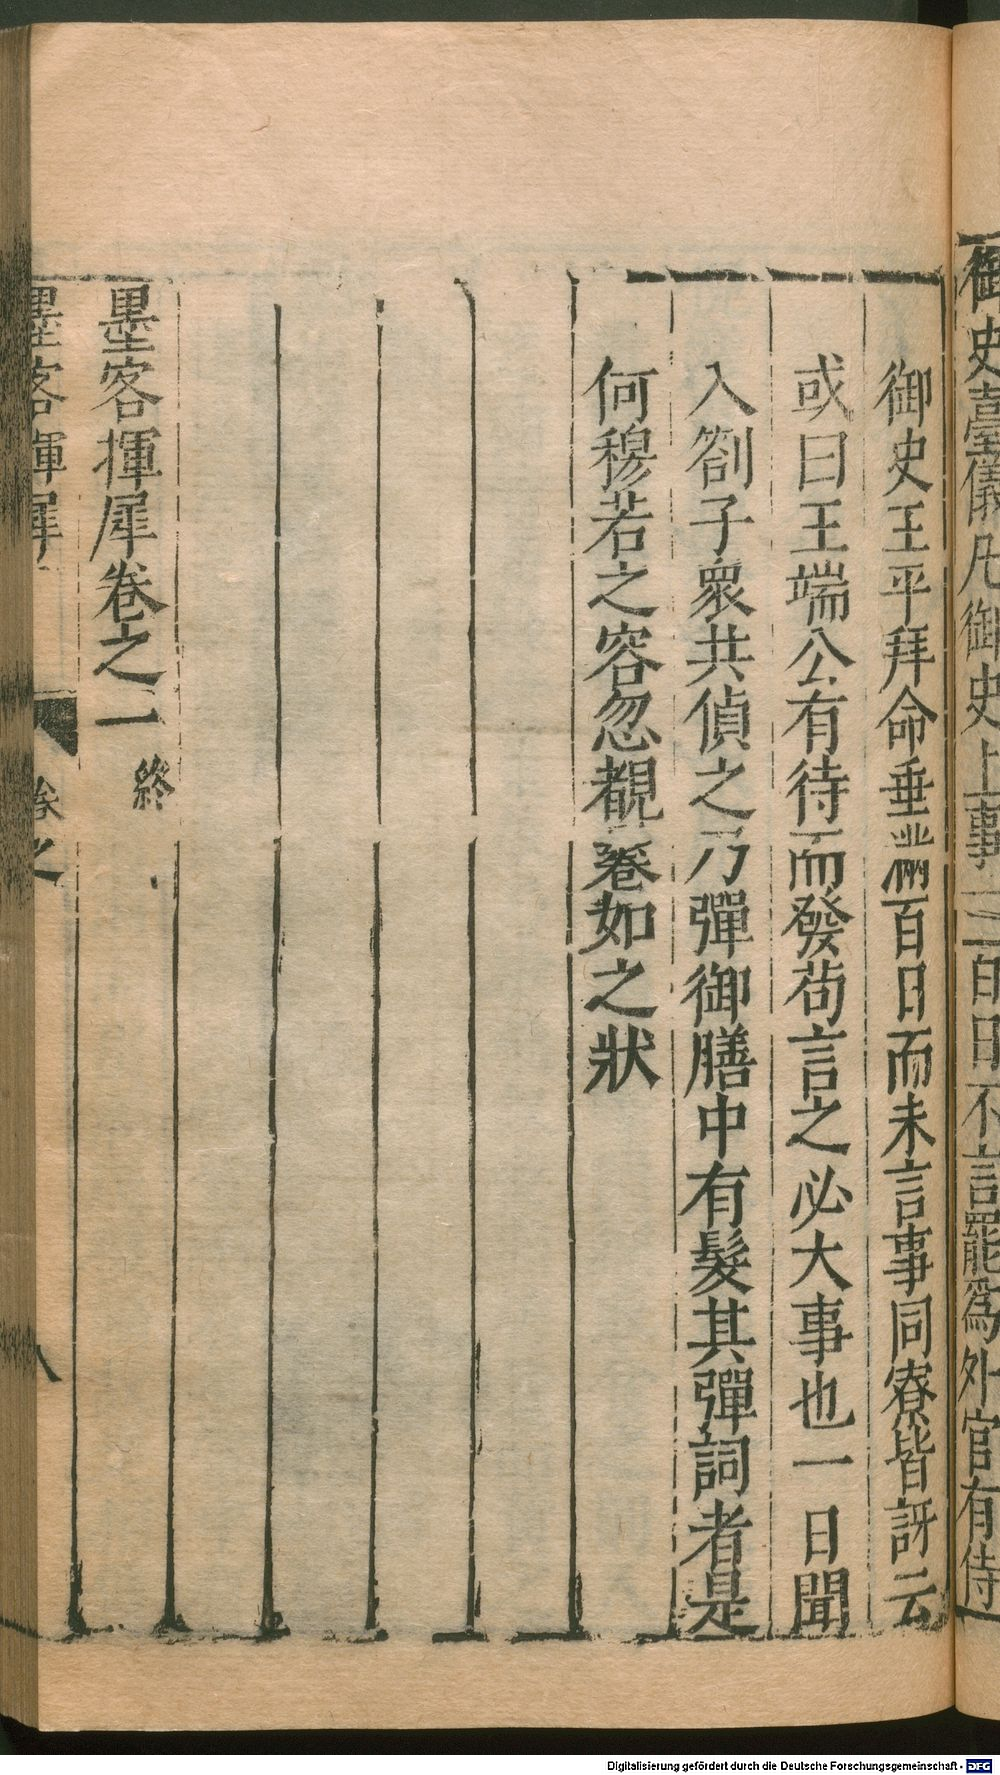 御史臺儀凡御史上事一百日不言罷爲外官有侍
御史王平拜命垂滿百日而未言事同寮皆訝云
或曰王端公有待而發苟言之必大事也一日聞
入劄子衆共偵之乃彈御膳中有髮其彈詞者是
何穆若之容忽覩鬈如之狀
墨客揮犀卷之一 終
墨客揮犀 卷之 八
Digitalisierung gefördert durch die Deutsche Forschungsgemeinschaft - DFG